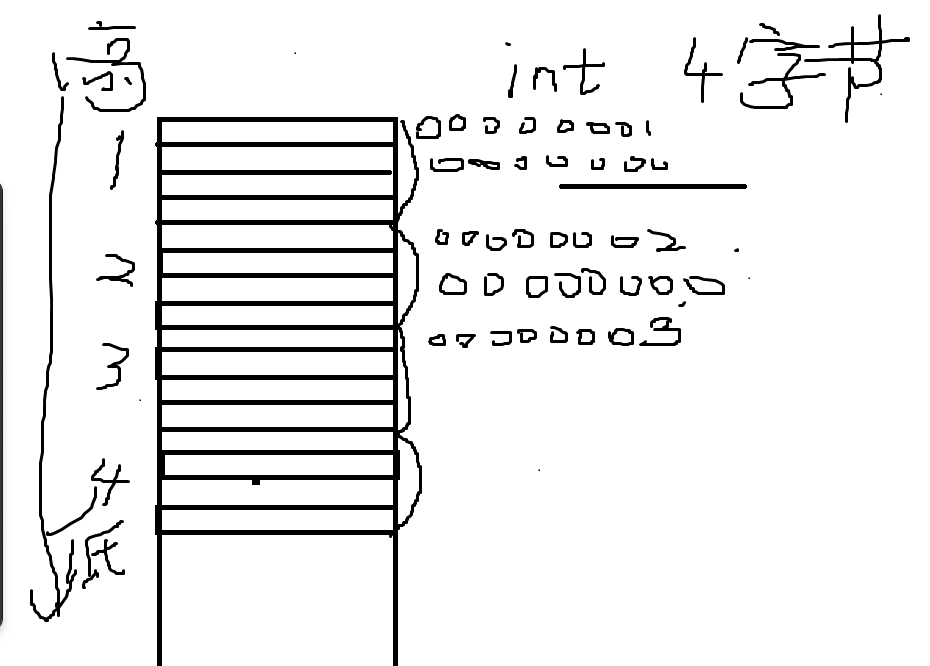 高
int 4字节
1
00000001
00000000
2
00000002
00000000
3
00000003
4
低